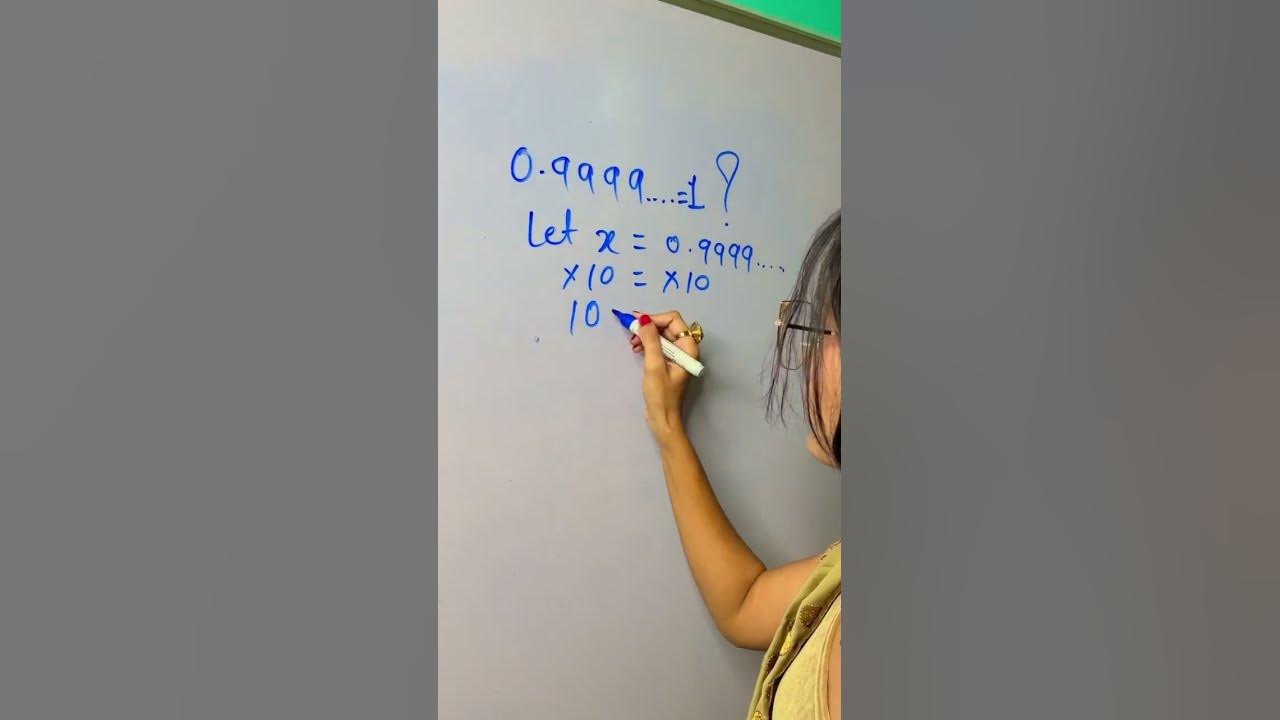 0.9999....=1?
Let x = 0.9999....
×10 = ×10
10